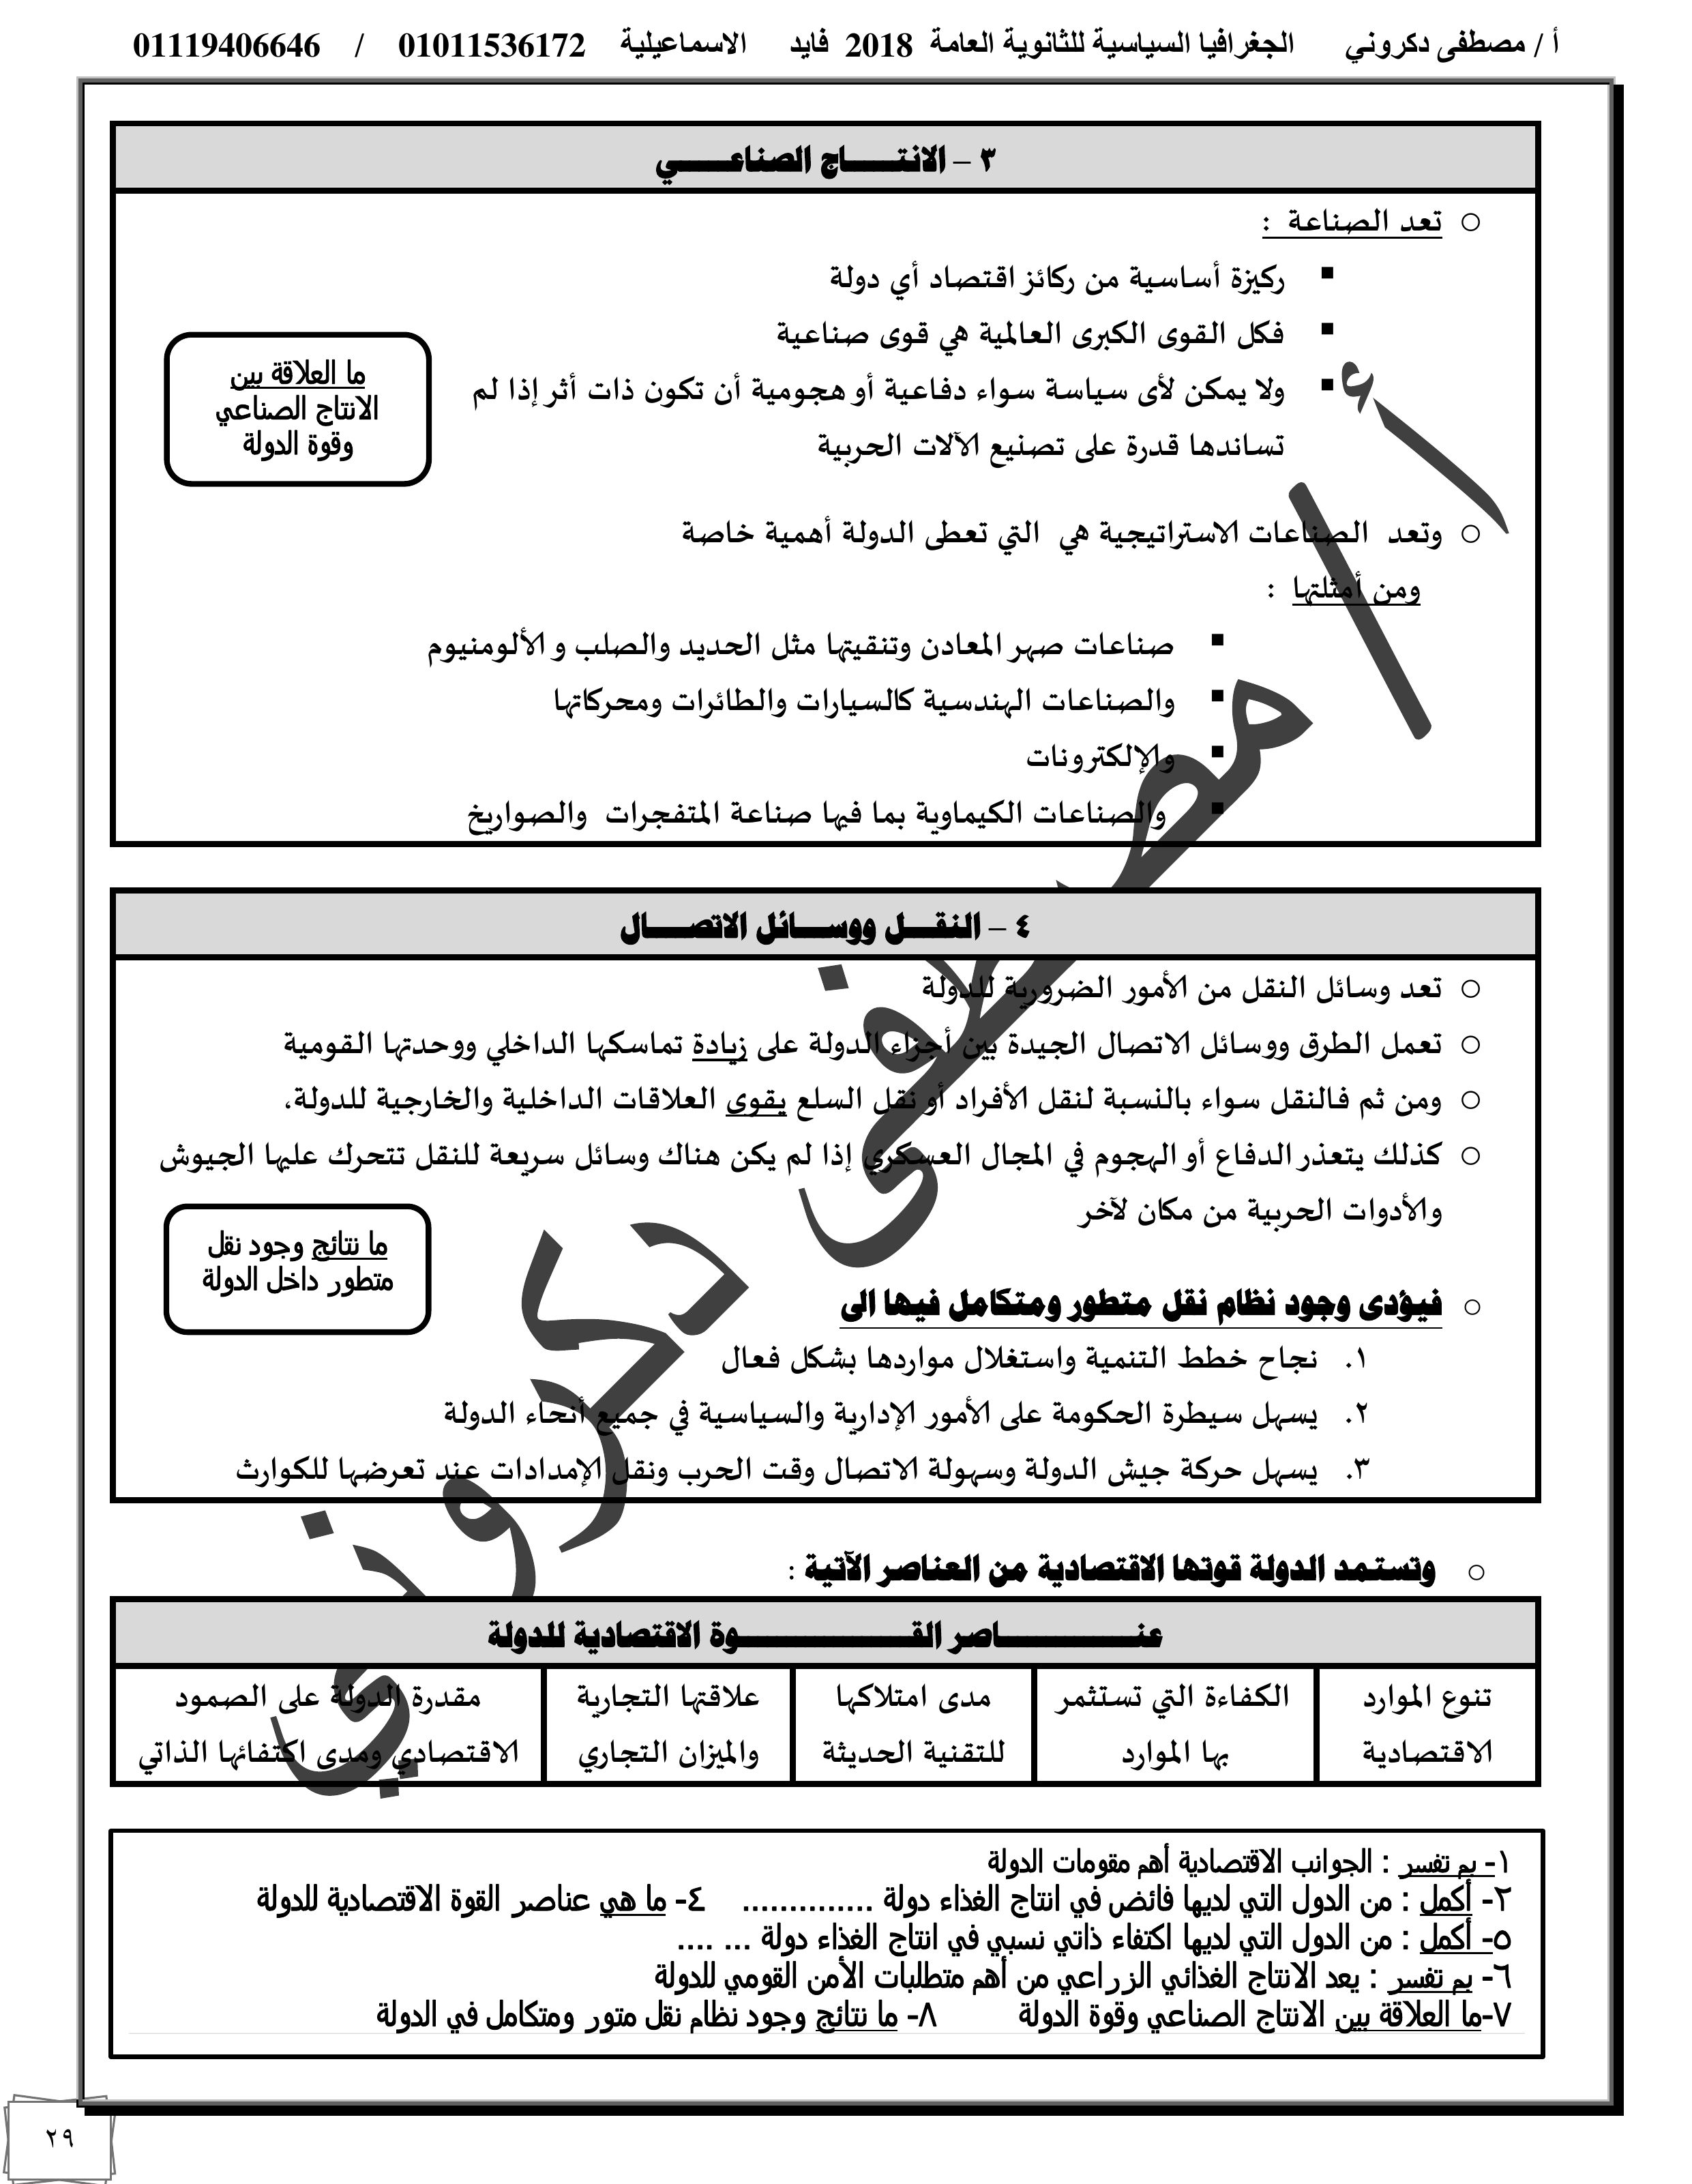 أ / مصطفى دكروني الجغرافيا السياسية للثانوية العامة 2018 فايد الاسماعيلية 01011536172 / 01119406646
٣ – الانتـــــاج الصناعـــــي
تعد الصناعة :
ركيزة أساسية من ركائز اقتصاد أي دولة
فكل القوى الكبرى العالمية هي قوى صناعية
ولا يمكن لأى سياسة سواء دفاعية أو هجومية أن تكون ذات أثر إذا لم
تساندها قدرة على تصنيع الآلات الحربية
ما العلاقة بين
الانتاج الصناعي
وقوة الدولة
وتعد الصناعات الاستراتيجية هي التي تعطى الدولة أهمية خاصة
ومن أمثلتها :
صناعات صهر المعادن وتنقيتها مثل الحديد والصلب و الألومنيوم
والصناعات الهندسية كالسيارات والطائرات ومحركاتها
والإلكترونات
والصناعات الكيماوية بما فيها صناعة المتفجرات والصواريخ
٤ – النقـــل ووســـائل الاتصـــال
تعد وسائل النقل من الأمور الضرورية للدولة
تعمل الطرق ووسائل الاتصال الجيدة بين أجزاء الدولة على زيادة تماسكها الداخلي ووحدتها القومية
ومن ثم فالنقل سواء بالنسبة لنقل الأفراد أو نقل السلع يقوى العلاقات الداخلية والخارجية للدولة.
كذلك يتعذر الدفاع أو الهجوم في المجال العسكري إذا لم يكن هناك وسائل سريعة للنقل تتحرك عليها الجيوش
والأدوات الحربية من مكان لآخر
ما نتائج وجود نقل
متطور داخل الدولة
فيؤدى وجود نظام نقل متطور ومتكامل فيها الى
١. نجاح خطط التنمية واستغلال مواردها بشكل فعال
٢. يسهل سيطرة الحكومة على الأمور الإدارية والسياسية في جميع أنحاء الدولة
٣. يسهل حركة جيش الدولة وسهولة الاتصال وقت الحرب ونقل الإمدادات عند تعرضها للكوارث
وتستمد الدولة قوتها الاقتصادية من العناصر الآتية :
عنــــــــــاصر القــــــــــــوة الاقتصادية للدولة
تنوع الموارد
الاقتصادية
الكفاءة التي تستثمر
بها الموارد
مدى امتلاكها
للتقنية الحديثة
علاقتها التجارية
والميزان التجاري
مقدرة الدولة على الصمود
الاقتصادي ومدى اكتفائها الذاتي
١- بم تفسر : الجوانب الاقتصادية أهم مقومات الدولة
٢- أكمل : من الدول التي لديها فائض في انتاج الغذاء دولة .............. ٤- ما هي عناصر القوة الاقتصادية للدولة
٥- أكمل : من الدول التي لديها اكتفاء ذاتي نسبي في انتاج الغذاء دولة ... ....
٦- بم تفسر : يعد الانتاج الغذائي الزراعي من أهم متطلبات الأمن القومي للدولة
٧-ما العلاقة بين الانتاج الصناعي وقوة الدولة ٨- ما نتائج وجود نظام نقل متور ومتكامل في الدولة
٢٩
أ / مصطفى دكروني